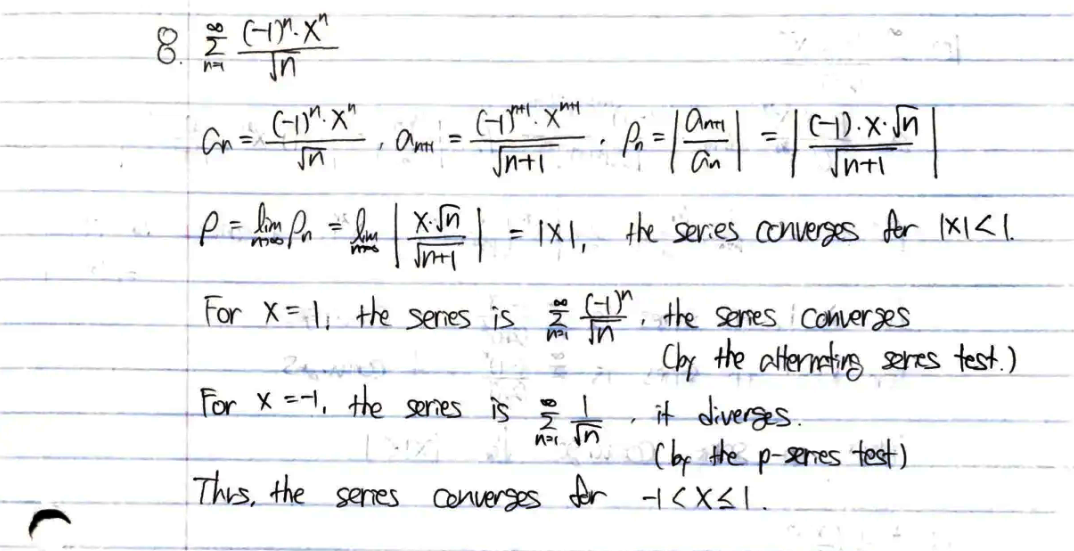 8. $\sum_{n=1}^{\infty} \frac{(-1)^n \cdot x^n}{\sqrt{n}}$
$a_n = \frac{(-1)^n \cdot x^n}{\sqrt{n}}$, $a_{n+1} = \frac{(-1)^{n+1} \cdot x^{n+1}}{\sqrt{n+1}}$. $\rho_n = \left| \frac{a_{n+1}}{a_n} \right| = \left| \frac{(-1) \cdot x \cdot \sqrt{n}}{\sqrt{n+1}} \right|$
$\rho = \lim_{n \to \infty} \rho_n = \lim_{n \to \infty} \left| \frac{x \cdot \sqrt{n}}{\sqrt{n+1}} \right| = |x|$, the series converges for $|x| < 1$.
For $x = 1$, the series is $\sum_{n=1}^{\infty} \frac{(-1)^n}{\sqrt{n}}$, the series converges
(by the alternating series test.)
For $x = -1$, the series is $\sum_{n=1}^{\infty} \frac{1}{\sqrt{n}}$, it diverges.
(by the p-series test)
Thus, the series converges for $-1 < x \leq 1$.